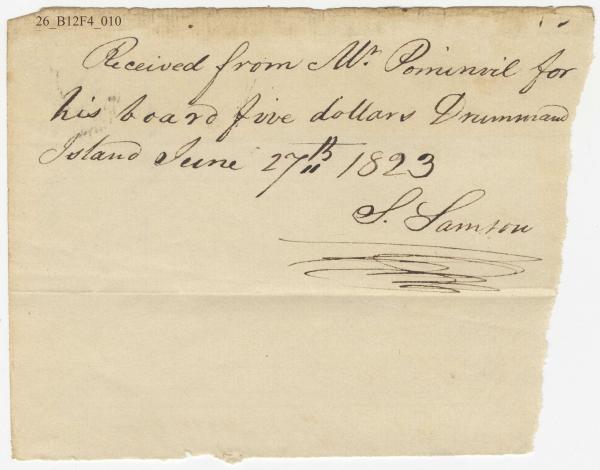 26_B12F4_010
Received from Mr. Pominvil for
his board five dollars Drummand
Island June 27th 1823
S. Samson